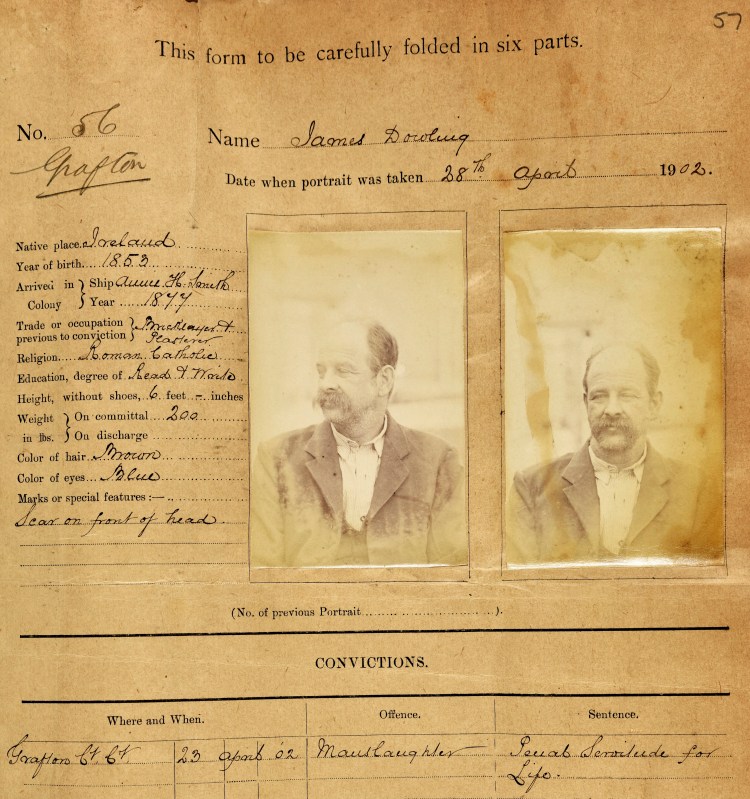 57
This form to be carefully folded in six parts.
No. 56
Name James Dowling
Grafton
Date when portrait was taken 28th April 1902.
Native place. Ireland
Year of birth. 1853
Arrived in Colony } Ship Annie H. Smith
Year 1877
Trade or occupation previous to conviction } Bricklayer & Plasterer
Religion. Roman Catholic
Education, degree of Read & Write
Height, without shoes, 6 feet - inches
Weight in lbs. } On committal 200
On discharge
Color of hair Brown
Color of eyes Blue
Marks or special features:—
Scar on front of head.
(No. of previous Portrait ).
CONVICTIONS.
Where and When. Offence. Sentence.
Grafton Ct. Ct. 23 April 02 Manslaughter Penal Servitude for
Life.